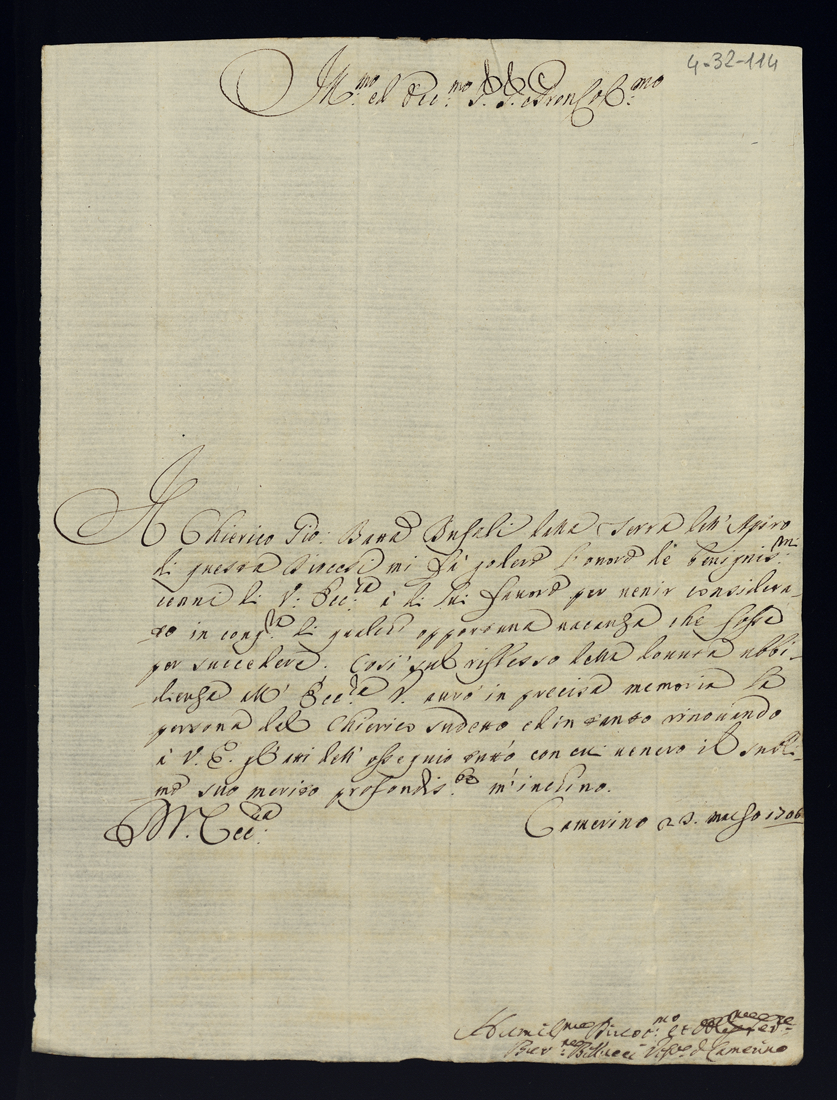 4-32-114
Ill.mo et Ecc.mo Sig. Sig. e Pron Col.mo
Il Chierico Gio: Batta Bufali della Serra dell' Apiro
di questa Diocesi mi fà godere l'onore de benignis.mi
cenni di V: Ecc.za à di lui favore per venir considera-
to in cong.ra di qualche opportuna vacanza che fosse
per succedere. Così sul riflesso della dovuta ubbi-
dienza all' Ecc.za V. avrò in precisa memoria la
persona del Chierico sudetto ed in tanto rinovando
à V. E. gl'atti dell' ossequio tutto con cui venero il subli-
me suo merito profondis.te m'inchino.
D V. Ecc.za
Camerino 23. marzo 1706
Humil.mo Divot.mo et
Bellucci Vesc.o di Camerino